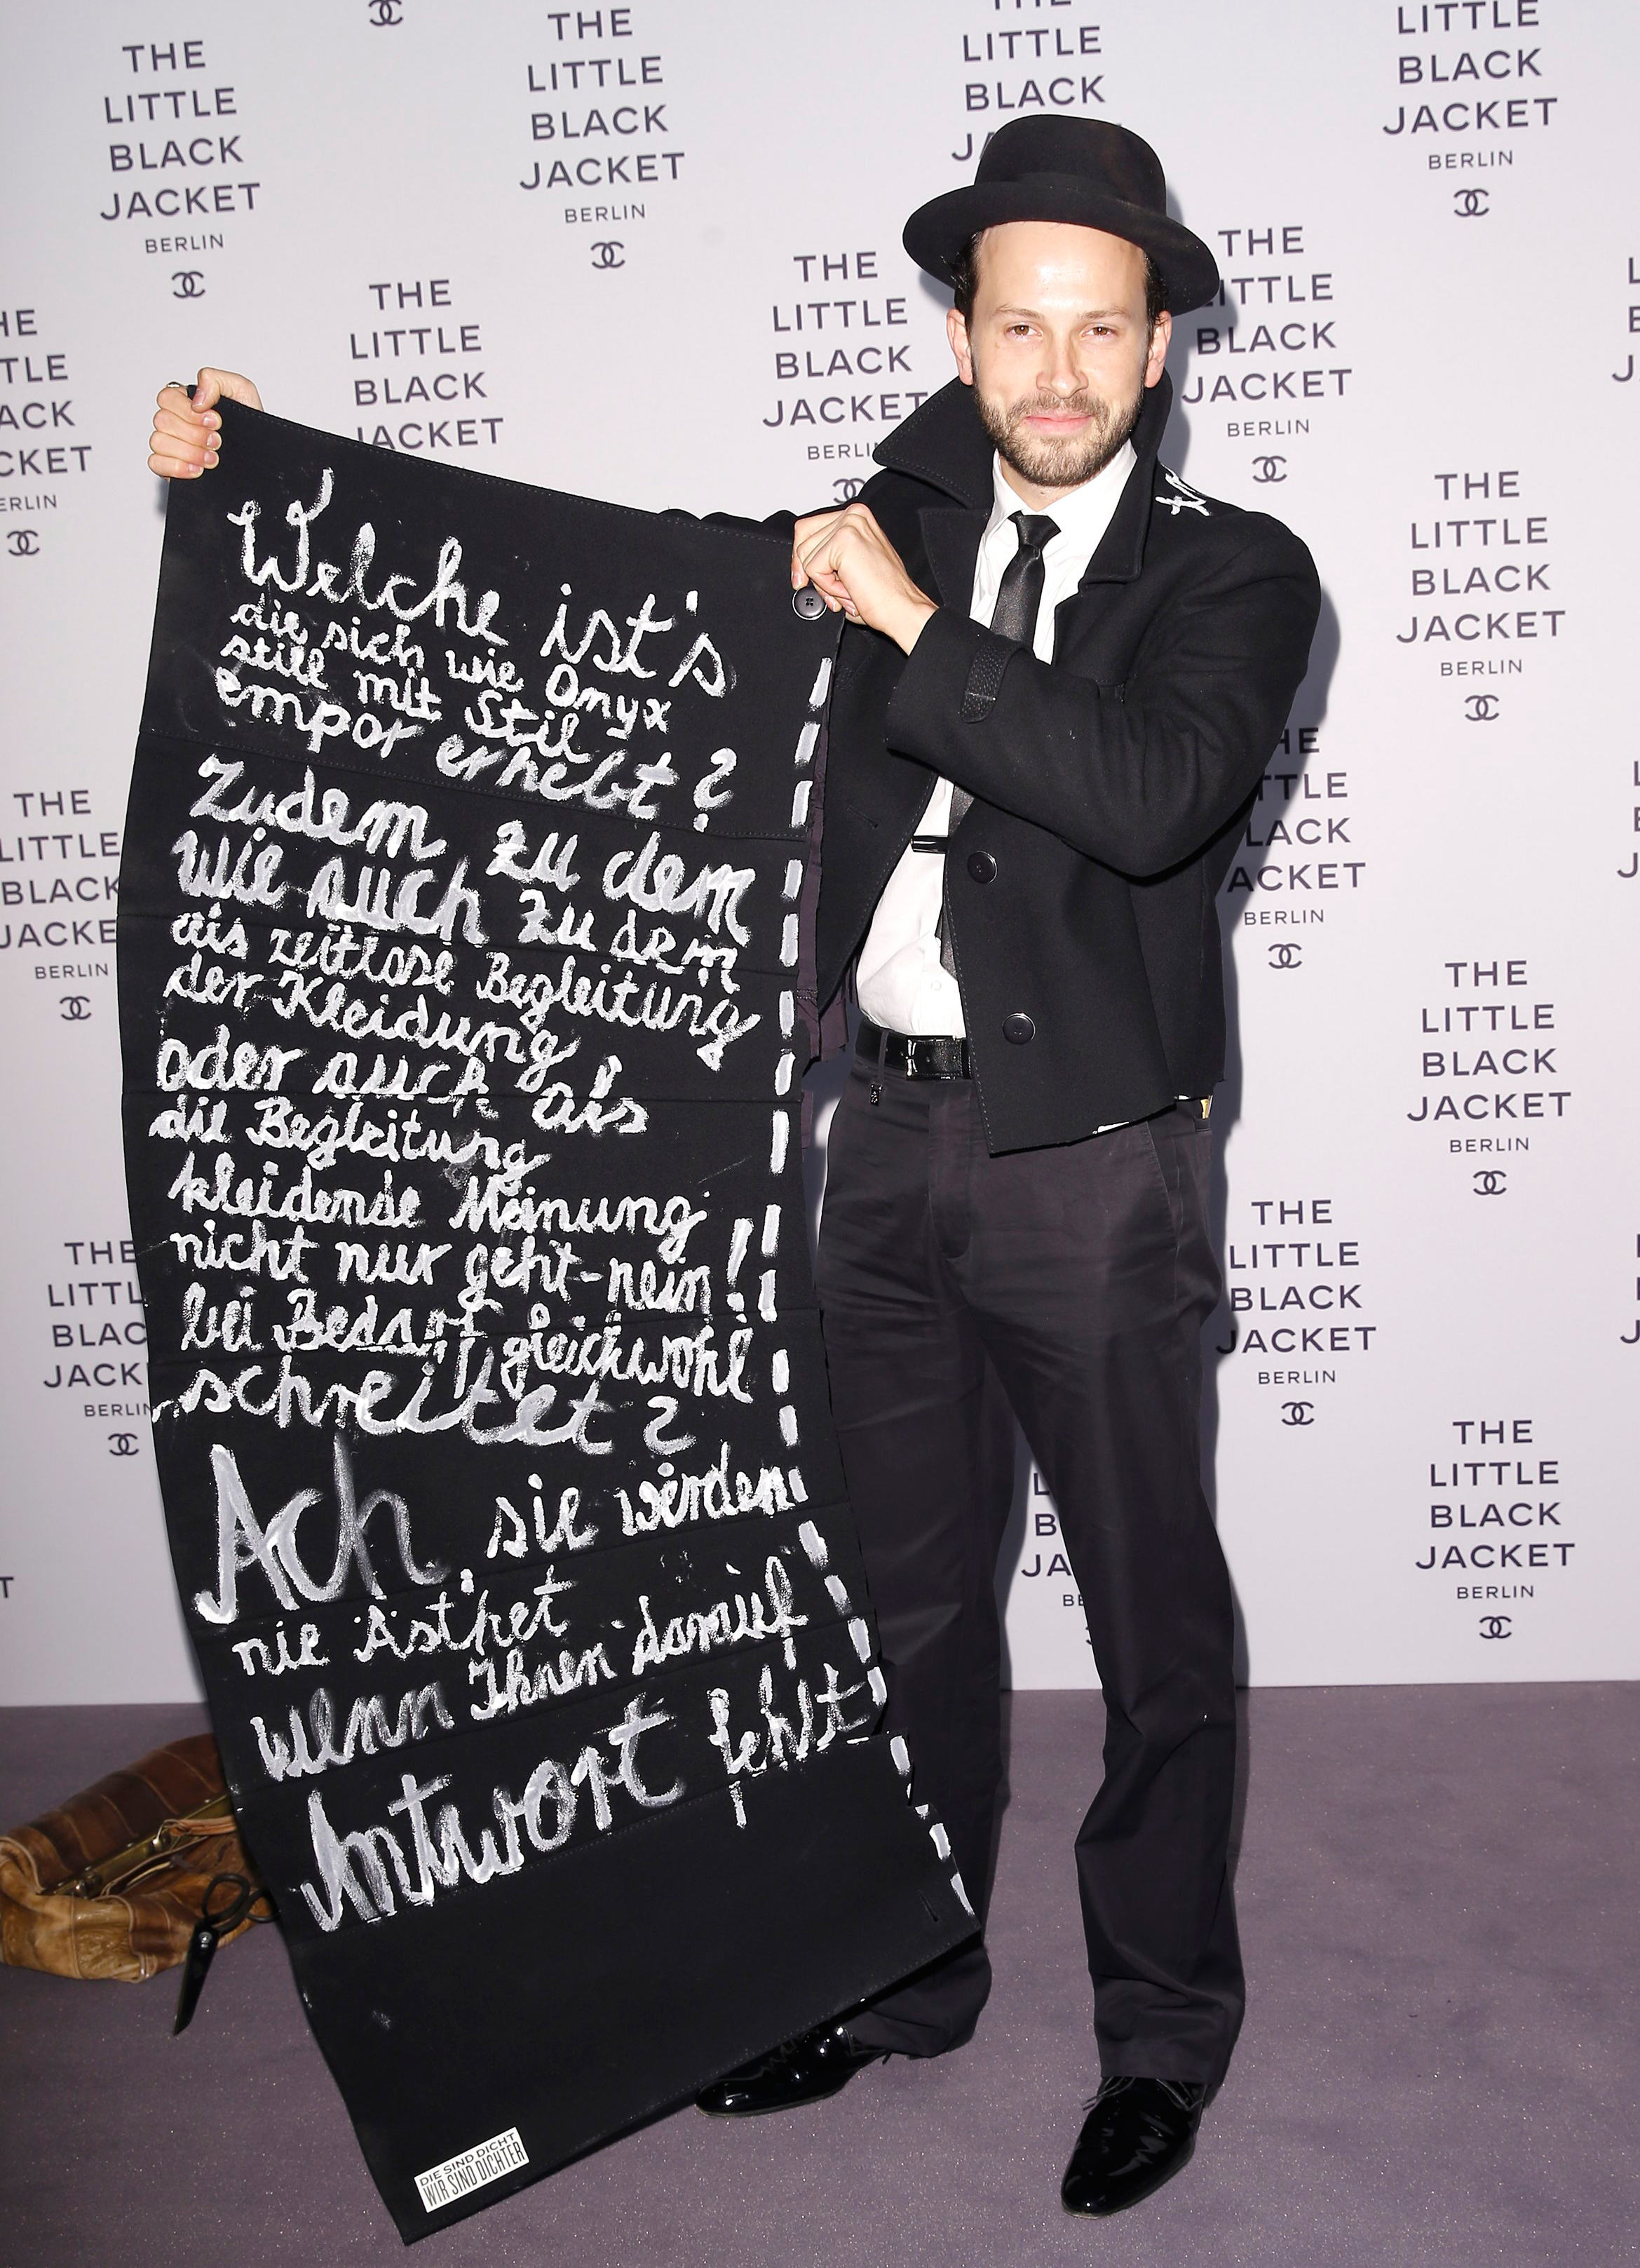 Welche ist's
die sich wie Onyx
still mit Stil
empor erhebt?
Zudem zu dem
wie auch zu dem
als zeitlose Begleitung
der Kleidung
oder auch als
die Begleitung
kleidende Meinung
nicht nur geht-nein!
bei Bedarf gleichwohl
schreitet?
Ach, sie werden
nie Ästhet
wenn Ihnen darauf
Antwort fehlt
DIE SIND DICHT
WIR SIND DICHTER
THE
LITTLE
BLACK
JACKET
BERLIN
THE
LITTLE
BLACK
JACKET
BERLIN
THE
LITTLE
BLACK
JACKET
LITTLE
BLACK
JACKET
BERLIN
THE
LITTLE
BLACK
JACKET
THE
LITTLE
BLACK
JACKET
BERLIN
THE
LITTLE
BLACK
JACKET
BERLIN
THE
LITTLE
BLACK
JACKET
BERLIN
THE
LITTLE
BLACK
BERLIN
THE
BERLIN
THE
LITTLE
BLACK
JACKET
BERLIN
THE
LITTLE
BLACK
JACKET
BERLIN
THE
LITTLE
BLACK
JACKET
BERLIN